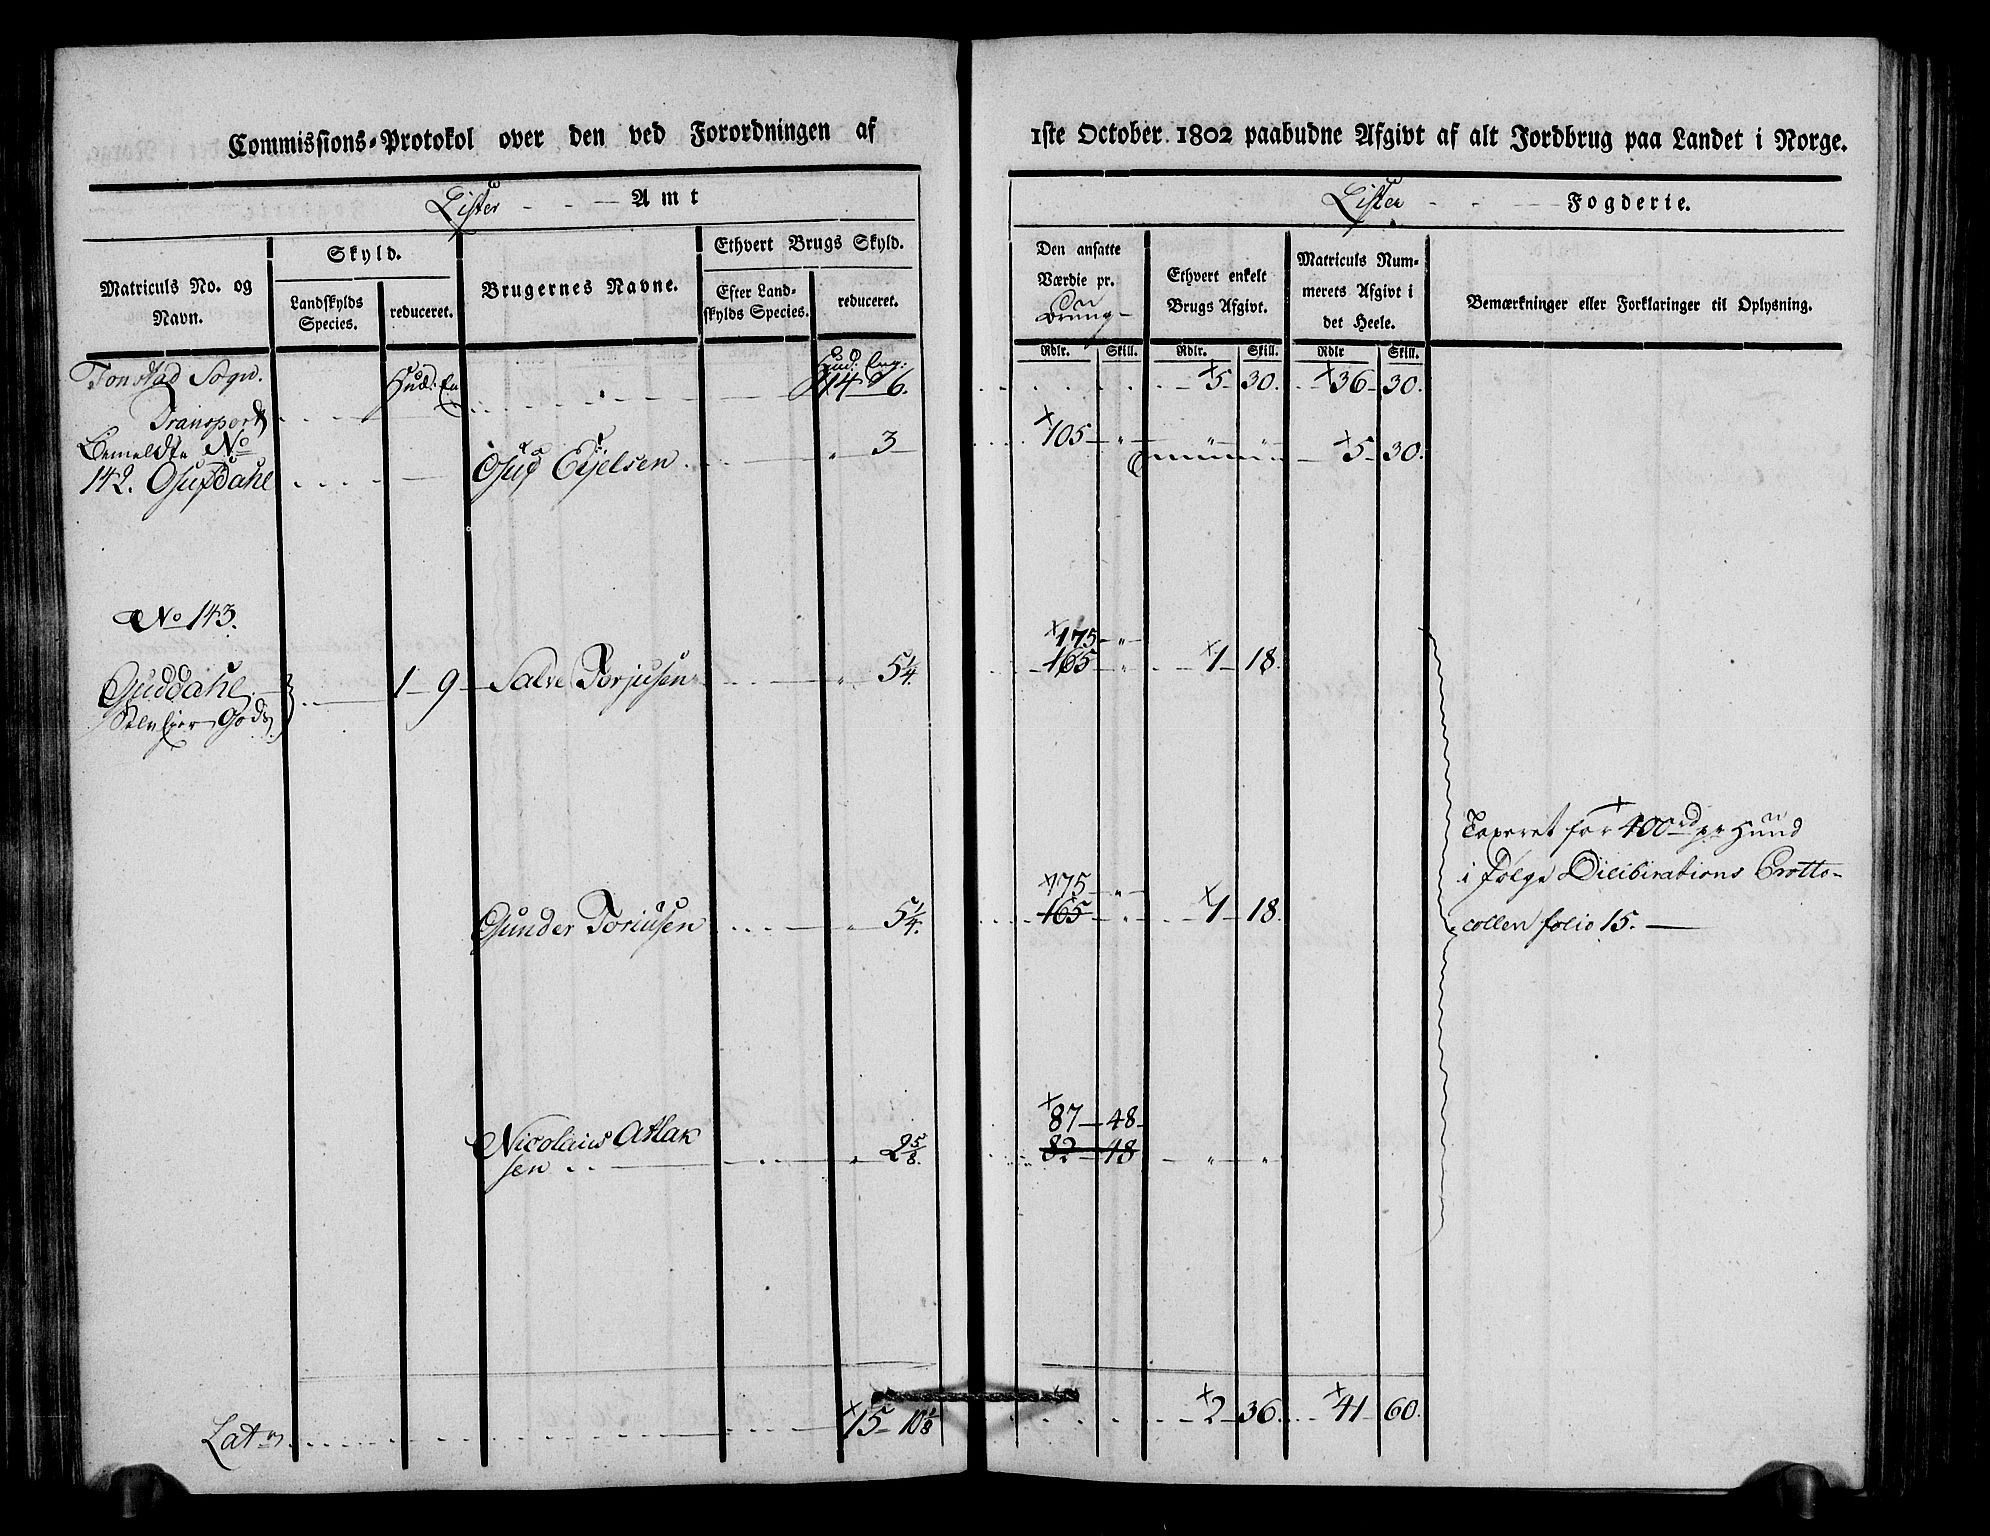 Commissions-Protokol over den ved Forordningen af
1ste October 1802 paabudne Afgivt af alt Jordbrug paa Landet i Norge.
Lister Amt
Lister Fogderie.
Matriculs No. og Navn.
Skyld.
Landskylds Species.
reduceret.
Brugernes Navne.
Ethvert Brugs Skyld.
Efter Landskylds Species.
reduceret.
Den ansatte Værdie pr.
Ethvert enkelt Brugs Afgivt.
Matriculs Nummerets Afgivt i det Heele.
Bemærkninger eller Forklaringer til Oplysning.
Rdlr. Skill. Rdlr. Skill. Rdlr Skill.
Tonstad Sogn. Hud. 14 - 6. 5 30. 36 30.
Transport
Bemeldte No
142. Osufdahl Osuf Eyelsen " 3 105 " " " 5 30.
No 143.
175 "
Guddahl 1 - 9 Salve Torjusen " 5 1/4. 165 " 1 18.
Selv Ejer Gods
Taxeret for 400 rd pr Hud
i følge Dilibirations Protto-
collen folio 15.
175 "
Gunder Toriusen " 5 1/4. 165 " 1 18.
87 48
Nicolaus Aslak " 2 5/8. 82 48 " "
sen
Lat 15 - 10 1/8 2 36. 41 60.